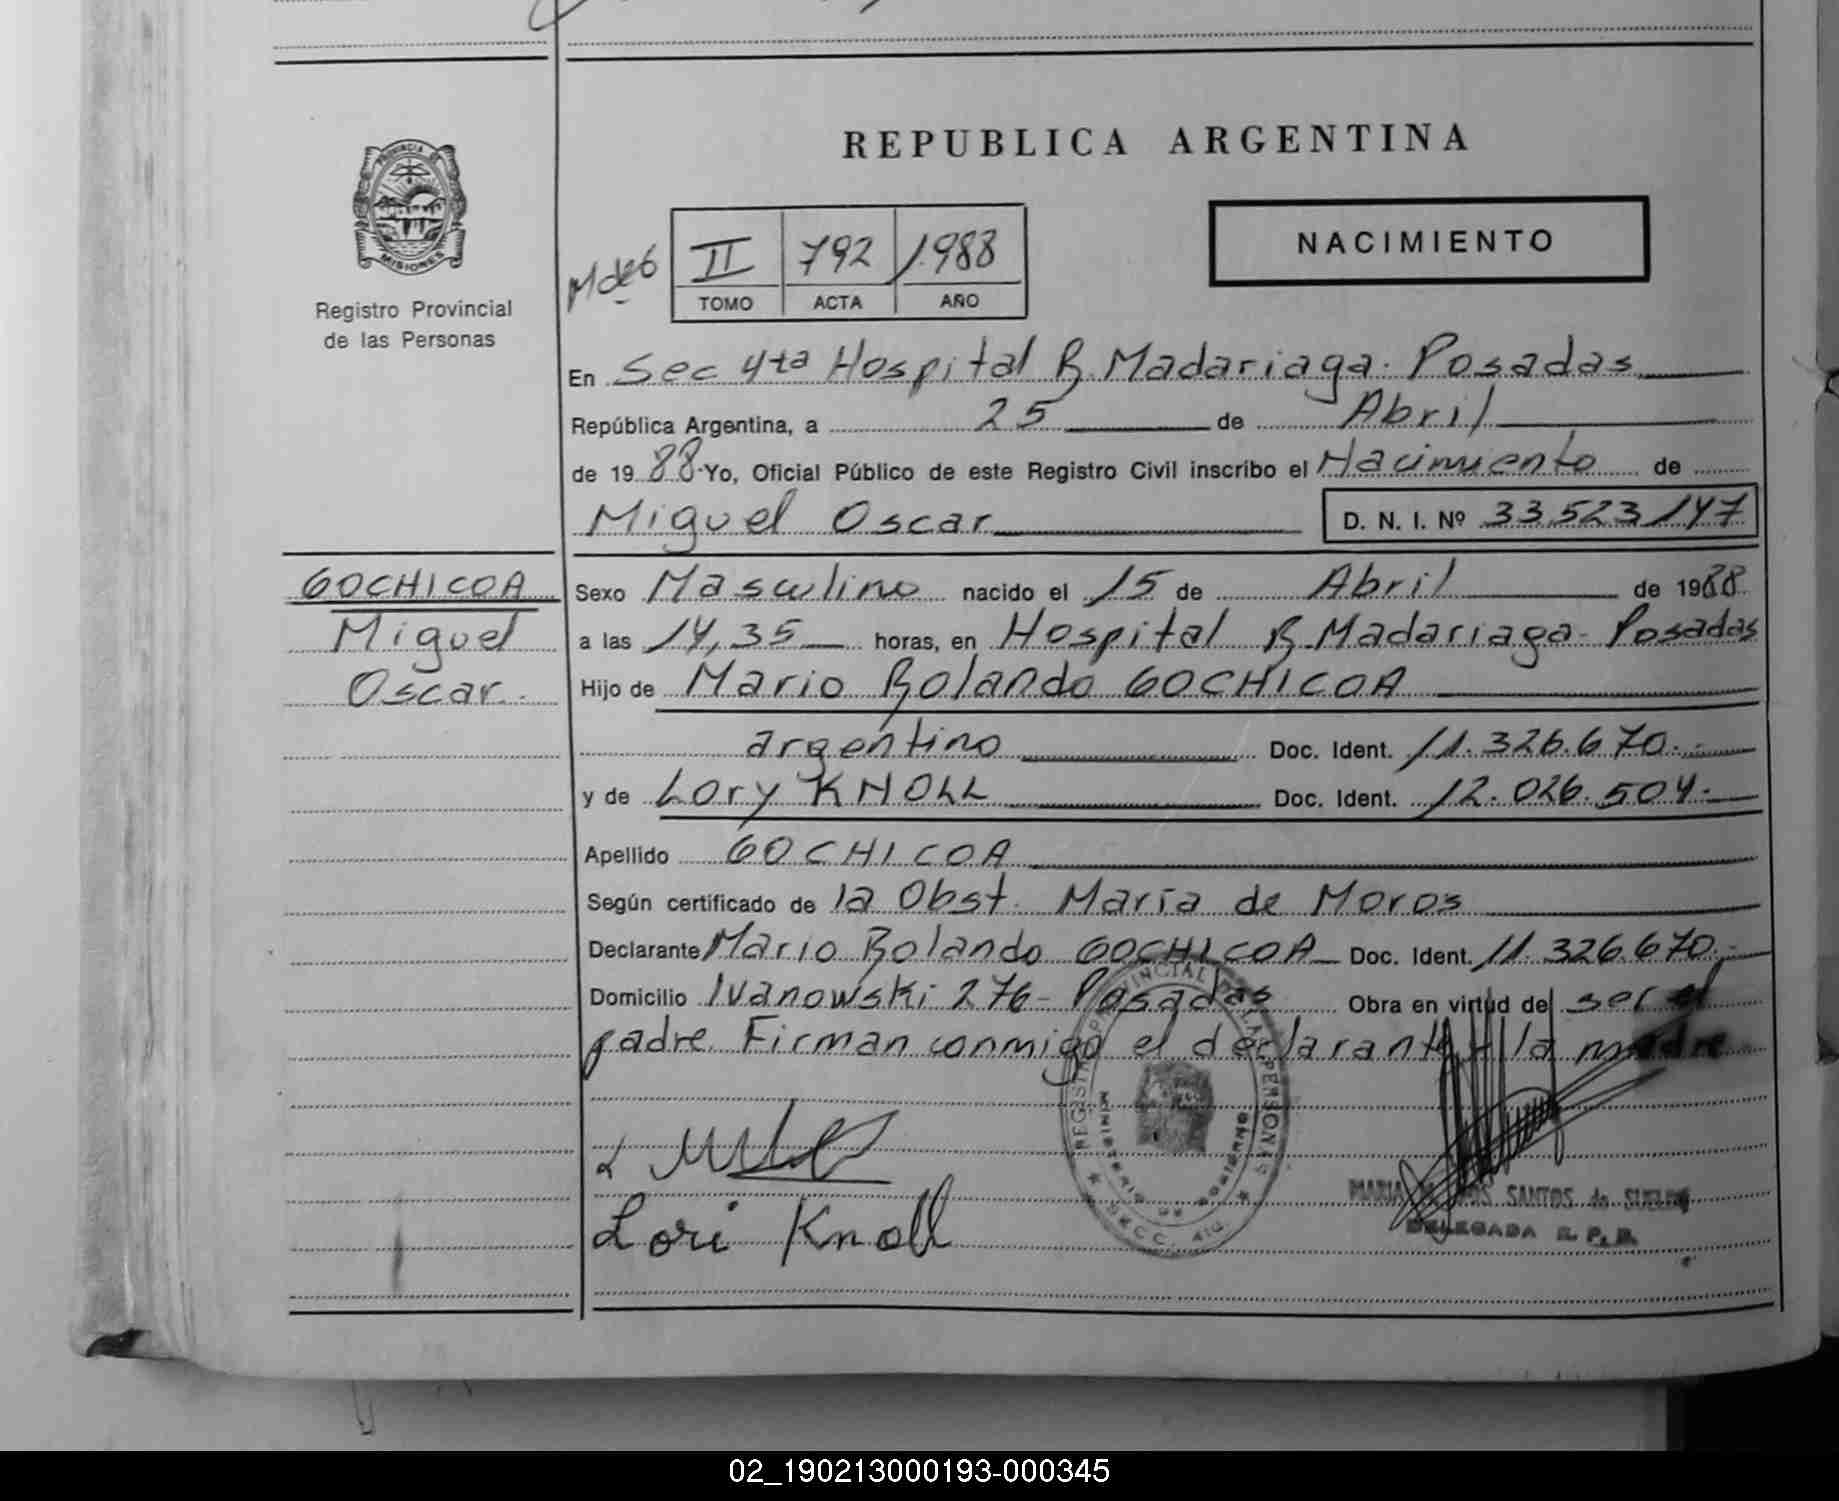 PROVINCIA DE
MISIONES
Registro Provincial
de las Personas
REPUBLICA ARGENTINA
NACIMIENTO
II 792 1.988
TOMO ACTA AÑO
En Sec 4ta Hospital R. Madariaga. Posadas
República Argentina, a 25 de Abril
de 1988 Yo, Oficial Público de este Registro Civil inscribo el Nacimiento de
Miguel Oscar D. N. I. Nº 33.523.147
GOCHICOA
Miguel
Oscar.
Sexo Masculino nacido el 15 de Abril de 1988
a las 14,35 horas, en Hospital R. Madariaga - Posadas
Hijo de Mario Rolando GOCHICOA
argentino Doc. Ident. 11.326.670.-
y de Lory KNOLL Doc. Ident. 12.026.504.-
Apellido GOCHICOA
Según certificado de la Obst. María de Moros
Declarante Mario Rolando GOCHICOA Doc. Ident. 11.326.670.-
Domicilio Ivanowski 276 - Posadas Obra en virtud de ser el
padre. Firman conmigo el declarante y la madre
REGISTRO PROVINCIAL DE LAS PERSONAS
MINISTERIO DE GOBIERNO
SECC. 4ta
Lori Knoll
MARIA SANTOS de
DELEGADA R. P. P.
02_190213000193-000345